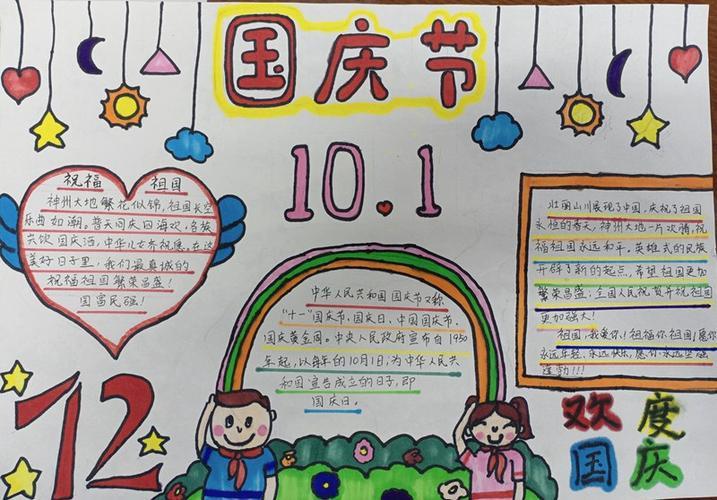 国庆节
10.1
祝福 祖国
神州大地繁花似锦,祖国长空
乐曲如潮,普天同庆四海欢,各族
共饮国庆酒,中华儿女齐祝愿,在这
美好日子里,我们最真诚的
祝福祖国繁荣昌盛!
国富民强!
中华人民共和国国庆节又称
"十一"国庆节、国庆日、中国国庆节、
国庆黄金周。中央人民政府宣布自1950
年起,以每年的10月1日,为中华人民共
和国宣告成立的日子,即
国庆日。
壮丽山川展现了中国,庆祝了祖国
永恒的春天,神州大地一片欢腾,祝
福祖国永远和平。英雄式的民族
开辟了新的起点,希望祖国更加
繁荣昌盛!全国人民祝贺并祝祖国
更加强大!
祖国,我爱你!祝福你祖国!愿你
永远年轻、永远快乐,愿你永远坚强
72
欢度
国庆